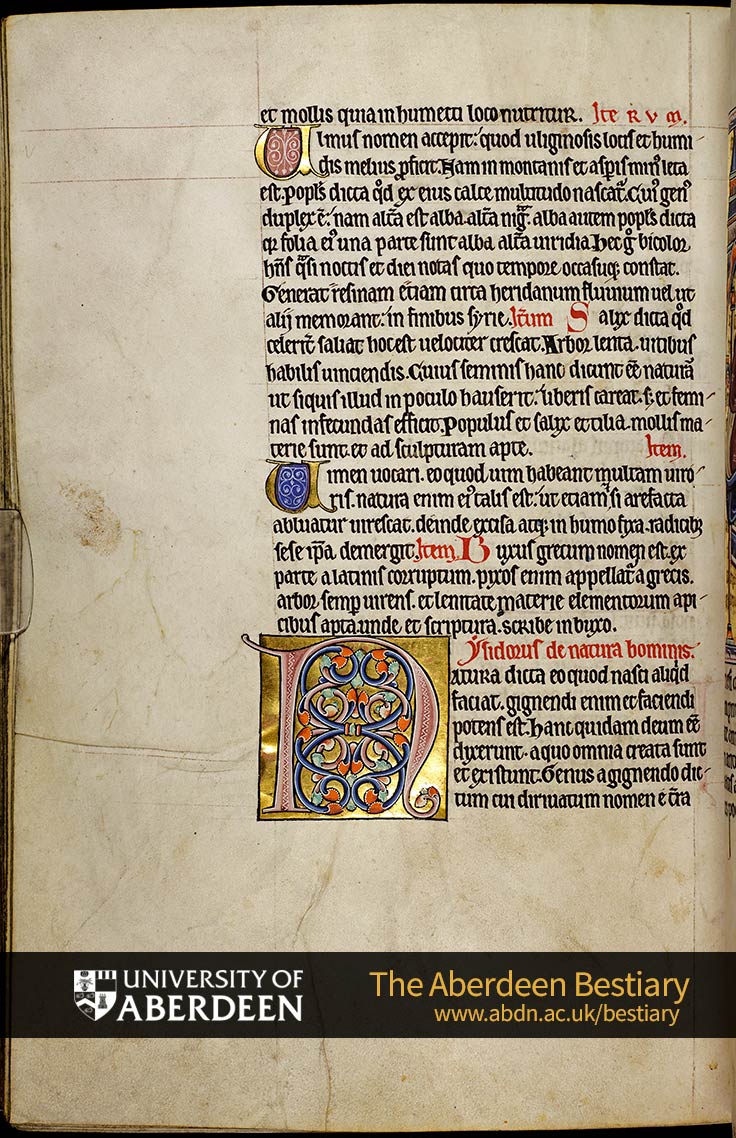 et mollis quia in humecti loco nutritur. Iterum.
Ulmus nomen accepit: quod uliginosis locis et humi-
dis melius ꝓficit. Nam in montanis et asp̃is min' leta
est. Popl's dicta q̊d ex eius calce multitudo nascat̃. Cui' gen'
duplex ē: nam alt̃a est alba. alt̃a nig̃. alba autem popl's dicta
q̃ folia ei' una parte sunt alba alt̃a uiridia. Hec g̊ bicolor
hñs q̃si noctis et diei notas quo tempore occasuq; constat.
Generat resinam etiam circa heridanum fluuium uel ut
alij memorant: in finibus syrie. Itẽum Salix dicta q̊d
celerit̃ saliat hoc est uelociter crescat. Arbor lenta. uitibus
habilis uinciendis. Cuius seminis hanc dicunt ēē naturā
ut siquis illud in poculo hauserit: liberis careat. s; et femi-
nas infecundas efficit. Populus et salix et tilia. mollis ma-
terie sunt. et ad sculpturam apte. Item.
Uimen uocari. eo quod uim habeant multam uiro-
ris. natura enim ei' talis est. ut etiam si arefacta
abluatur uirescat. deinde excisa atq; in humo fixa. radicib;
sese ip̃a demergit. Item Buxus grecum nomen est. ex
parte a latinis corruptum. pixos enim appellat̃ a grecis.
arbor semp uirens. et lenitate materie elementorum api-
cibus apta. unde et scriptura. scribe in buxo.
Ysidorus de natura hominis.
Natura dicta eo quod nasci aliq̊d
faciat. gignendi enim et faciendi
potens est. Hanc quidam deum ēē
dixerunt. a quo omnia creata sunt
et existunt. Genus a gignendo dic-
tum cui diriuatum nomen ē t̃ra
UNIVERSITY OF
ABERDEEN
The Aberdeen Bestiary
www.abdn.ac.uk/bestiary